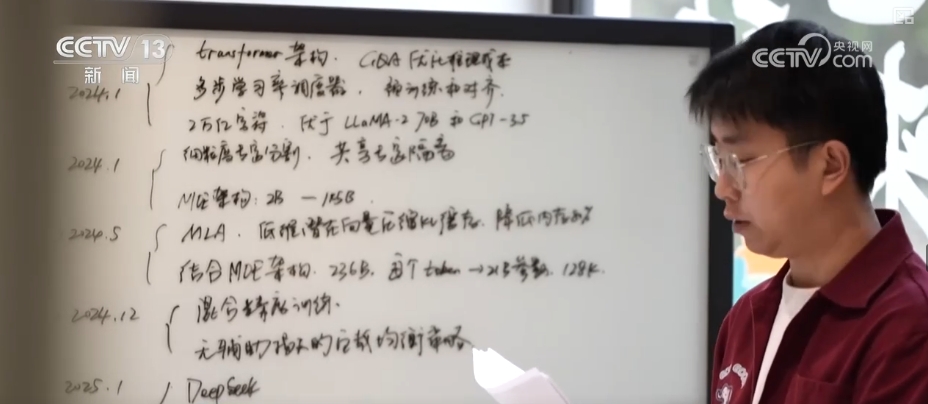 CCTV 13
新闻
CCTV 央视网
com
transformer 架构. GQA 优化推理成本
2024.1 多步学习率调度器, 预训练和对齐.
2万亿字符. 优于 LLaMA-2 70B 和 GPT-3.5
2024.1 细粒度专家分割. 共享专家隔离
MOE架构: 2B — 145B
2024.5 MLA. 低维潜在向量压缩KV缓存. 降低内存
结合MOE架构. 236B. 每个token → 21B参数. 128K.
2024.12 混合精度训练.
无辅助损失的负载均衡策略
2025.1 DeepSeek